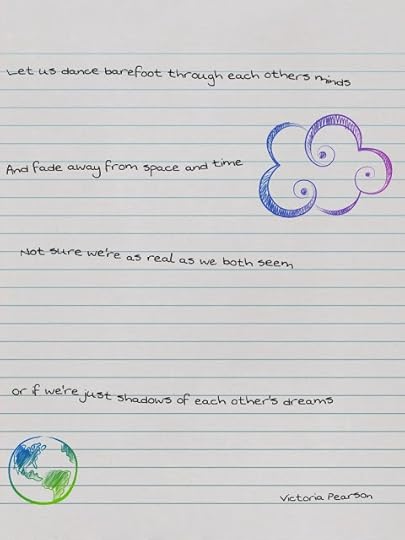 Let us dance barefoot through each others minds
And fade away from space and time
Not sure we're as real as we both seem
or if we're just shadows of each other's dreams
Victoria Pearson